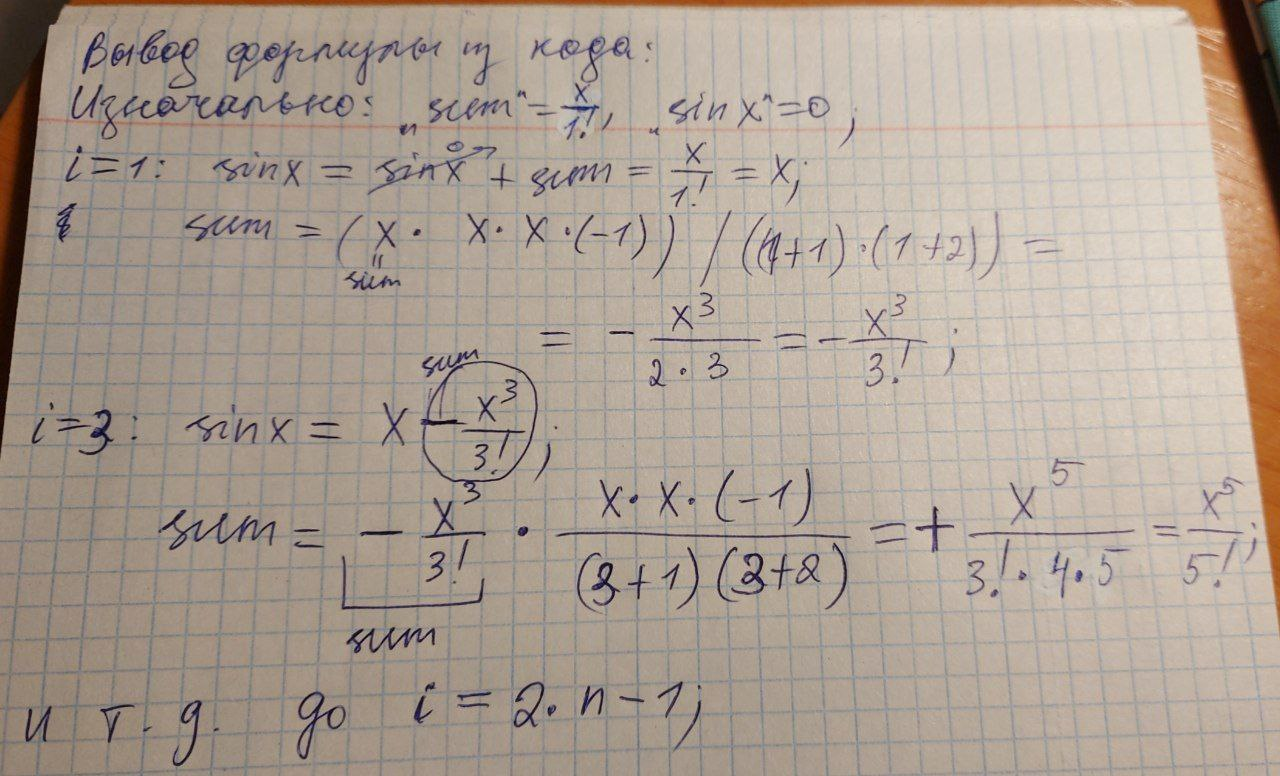 Вывод формулы из кода:
Изначально: „sum" = x/1!, „sin x" = 0;
i=1: sinx = sinx 0 + sum = x/1! = x;
sum = (x · x · x · (-1)) / ((1+1) · (1+2)) =
sum
= - x³/(2 · 3) = - x³/3! ;
sum
i=3: sinx = x - x³/3! ;
sum = - x³/3! · x · x · (-1)/((3+1)(3+2)) = + x⁵/(3! · 4 · 5) = x⁵/5! ;
sum
и т. д. до i = 2 · n - 1;